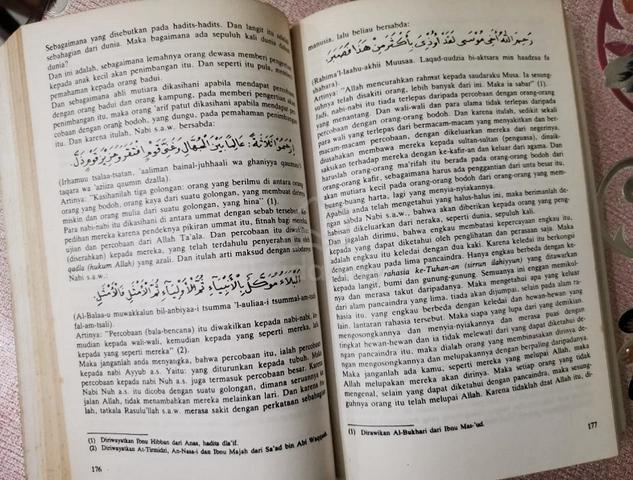 Sebagaimana yang disebutkan pada hadits-hadits. Dan langit itu
sebahagian dari dunia. Maka bagaimana ada sepuluh kali dunia
dunia?
Dan ini adalah, sebagaimana lemahnya orang dewasa memberi pengertian
kepada anak kecil akan penimbangan itu. Dan seperti itu pula, memberi
pemahaman kepada orang badui.
Dan sebagaimana ahli mutiara dikasihani apabila mendapat percobaan
dengan orang badui dan orang kampung, pada memberi pengertian akan
penimbangan itu, maka orang 'arif patut dikasihani apabila mendapat per-
cobaan dengan orang bodoh, yang dungu, pada pemahaman penimbangan
itu. Dan karena itulah, Nabi s.a.w. bersabda:
ارحموا ثلاثة: عالما بين الجهال وغني قوم افتقر وعزيز قوم ذل
(Irhamuu tsalaa-tsatan, 'aaliman bainal-juhhaali wa ghaniyya qaumin
taqara wa 'aziiza qaumin dzalla).
Artinya: "Kasihanilah tiga golongan: orang yang berilmu di antara orang-
orang yang bodoh, orang kaya dari suatu golongan, yang membuat dirinya
miskin dan orang mulia dari suatu golongan, yang hina" (1).
Para nabi-nabi itu dikasihani di antara ummat dengan sebab tersebut.
pedihan mereka karena pendeknya pikiran ummat itu, fitnah bagi mereka
ujian dan percobaan dari Allah Ta'ala. Dan percobaan itu
(diserahkan) kepada mereka, yang telah terdahulu penyerahan itu oleh
qadla (hukum Allah) yang azali. Dan itulah arti maksud dengan sabdanya
Nabi s.a.w.:
البلاء موكل بالأنبياء ثم الأولياء ثم الأمثل فالأمثل
(Al-Balaa-u muwakkalun bil-anbiyaa-i tsumma 'l-auliaa-i tsummal-am-tsali
fal-am-tsali).
Artinya: "Percobaan (bala-bencana) itu diwakilkan kepada nabi-nabi, ke-
mudian kepada wali-wali, kemudian kepada yang seperti mereka, lalu
kepada yang seperti mereka" (2).
Maka janganlah anda menyangka, bahwa percobaan itu, ialah percobaan
kepada nabi Ayyub a.s. Yaitu: yang diturunkan kepada tubuh. Maka
percobaan kepada nabi Nuh a.s. juga termasuk percobaan besar. Karena
Nabi Nuh a.s. itu dicoba dengan suatu golongan, dimana seruannya
jalan Allah, tidak menambahkan mereka melainkan lari. Dan karena
lah, tatkala Rasulu'llah s.a.w. merasa sakit dengan perkataan sebahagian
(1) Diriwayatkan Ibnu Hibban dari Anas, hadits dla'if.
(2) Diriwayatkan At-Tirmidzi, An-Nasa-i dan Ibnu Majah dari Sa'ad bin Abi Waqqash.
176
manusia, lalu beliau bersabda:
رحم الله أخي موسى لقد أوذي بأكثر من هذا فصبر
(Rahima'l-laahu-akhii Muusaa. Laqad-uudzia bi-aktsara min haadzaa fa
shabara)
Artinya: "Allah mencurahkan rahmat kepada saudaraku Musa. Ia sesung-
guhnya telah disakiti orang, lebih banyak dari ini. Maka ia sabar" (1).
Jadi, nabi-nabi itu tiada terlepas daripada percobaan dengan orang-orang
yang menantang. Dan wali-wali dan para ulama tidak terlepas daripada
percobaan dengan orang-orang bodoh. Dan karena itulah, sedikit sekali
para wali yang terlepas dari bermacam-macam yang menyakitkan dan ber-
macam-macam percobaan, dengan dikeluarkan mereka dari negerinya,
diusahakan membawa mereka kepada sultan-sultan (penguasa), dinaik-
saksikan terhadap mereka dengan ke-kafir-an dan keluar dari agama. Dan
haruslah orang-orang ma'rifah itu berada pada orang-orang bodoh dari
orang-orang kafir, sebagaimana harus ada pengenalan dari unta besar itu,
akan mutiara kecil pada orang-orang bodoh dari orang-orang yang mem-
buang-buang harta, lagi yang menyia-nyiakannya.
Apabila anda telah mengetahui yang halus-halus ini, maka berimanlah de-
ngan sabda Nabi s.a.w., bahwa akan diberikan kepada orang yang peng-
habisan dikeluarkan dari neraka, seperti dunia, sepuluh kali.
Dan jagalah bahwa engkau membatasi kepercayaan engkau itu,
kepada yang dapat diketahui oleh penglihatan dan perasaan saja. Maka
adalah engkau itu keledai dengan dua kaki. Karena keledai itu berkongsi
dengan engkau pada lima pancaindra. Hanya engkau berbeda dengan
keledai, dengan rahasia ke-Tuhan-an (sirrun ilahiyyun) yang ditawarkan
kepada langit, bumi dan gunung-gunung. Semuanya ini enggan memikul-
nya dan merasa takut daripadanya. Maka mengetahui apa yang keluar
dari alam pancaindra yang lima, tiada akan dijumpai, selain pada alam ra-
hasia itu, yang engkau berbeda dengan keledai dan hewan-hewan yang
lain, lantaran rahasia tersebut. Maka siapa yang lupa dari yang demikian,
mengosongkannya dan menyia-nyiakannya dan merasa puas dengan
tingkat hewan-hewan dan ia tidak melewati dari yang dapat diketahui de-
ngan pancaindra itu, maka dialah orang yang membinasakan dirinya de-
ngan mengosongkannya dan melupakannya dengan berpaling daripadanya.
Maka janganlah ada kamu, seperti mereka yang melupai Allah, maka
Allah melupakan mereka akan diri mereka. Maka setiap orang yang tidak
mengenal, selain yang dapat diketahui dengan pancaindra, maka sesung-
guhnya orang itu telah melupai Allah. Karena tidaklah dzat Allah itu, di-
(1) Dirawikan Al-Bukhari dari Ibnu Mas-'ud.
177